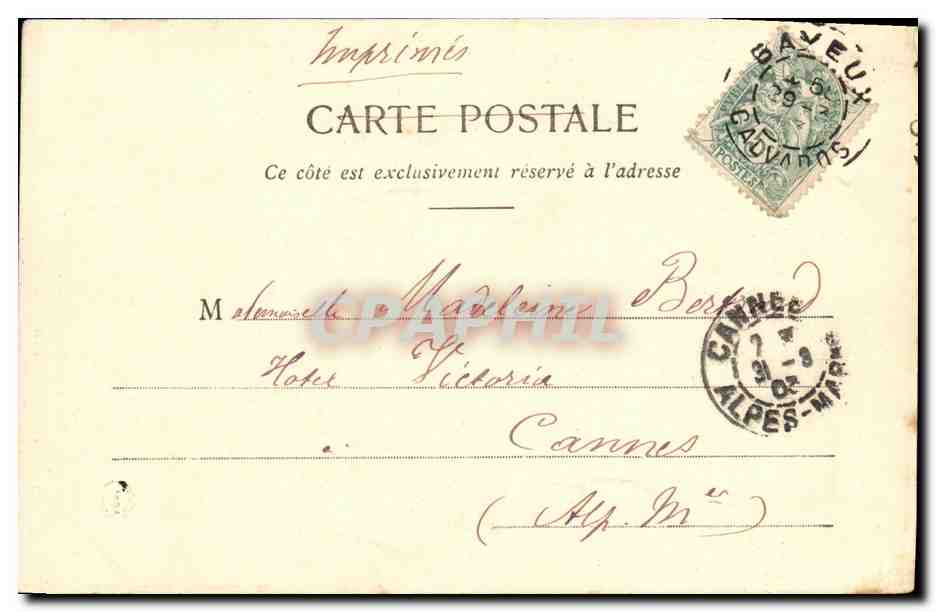 Imprimés
CARTE POSTALE
Ce côté est exclusivement réservé à l'adresse
BAYEUX
CALVADOS
POSTES
Mademoiselle Madeleine Bertrand
CPAPHIL
Hotel Victoria
Cannes
(Alp. Mes)
CANNES
7
31 -3
03
ALPES-MAR